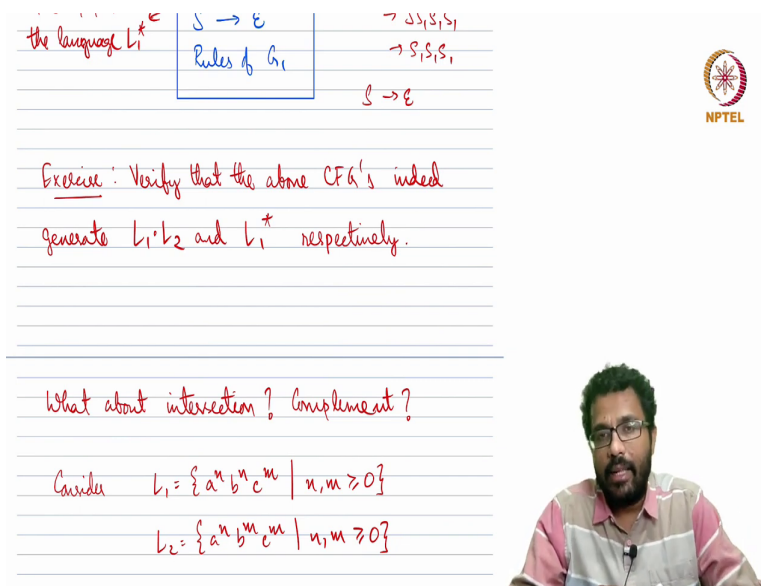 the language L₁*
S → ε
Rules of G₁
→ SS₁S₁S₁
→ S₁S₁S₁
S → ε
NPTEL
Exercise: Verify that the above CFG's indeed
generate L₁·L₂ and L₁* respectively.
What about intersection? Complement?
Consider L₁ = {aⁿ bⁿ cᵐ | n, m ≥ 0}
L₂ = {aⁿ bᵐ cᵐ | n, m ≥ 0}